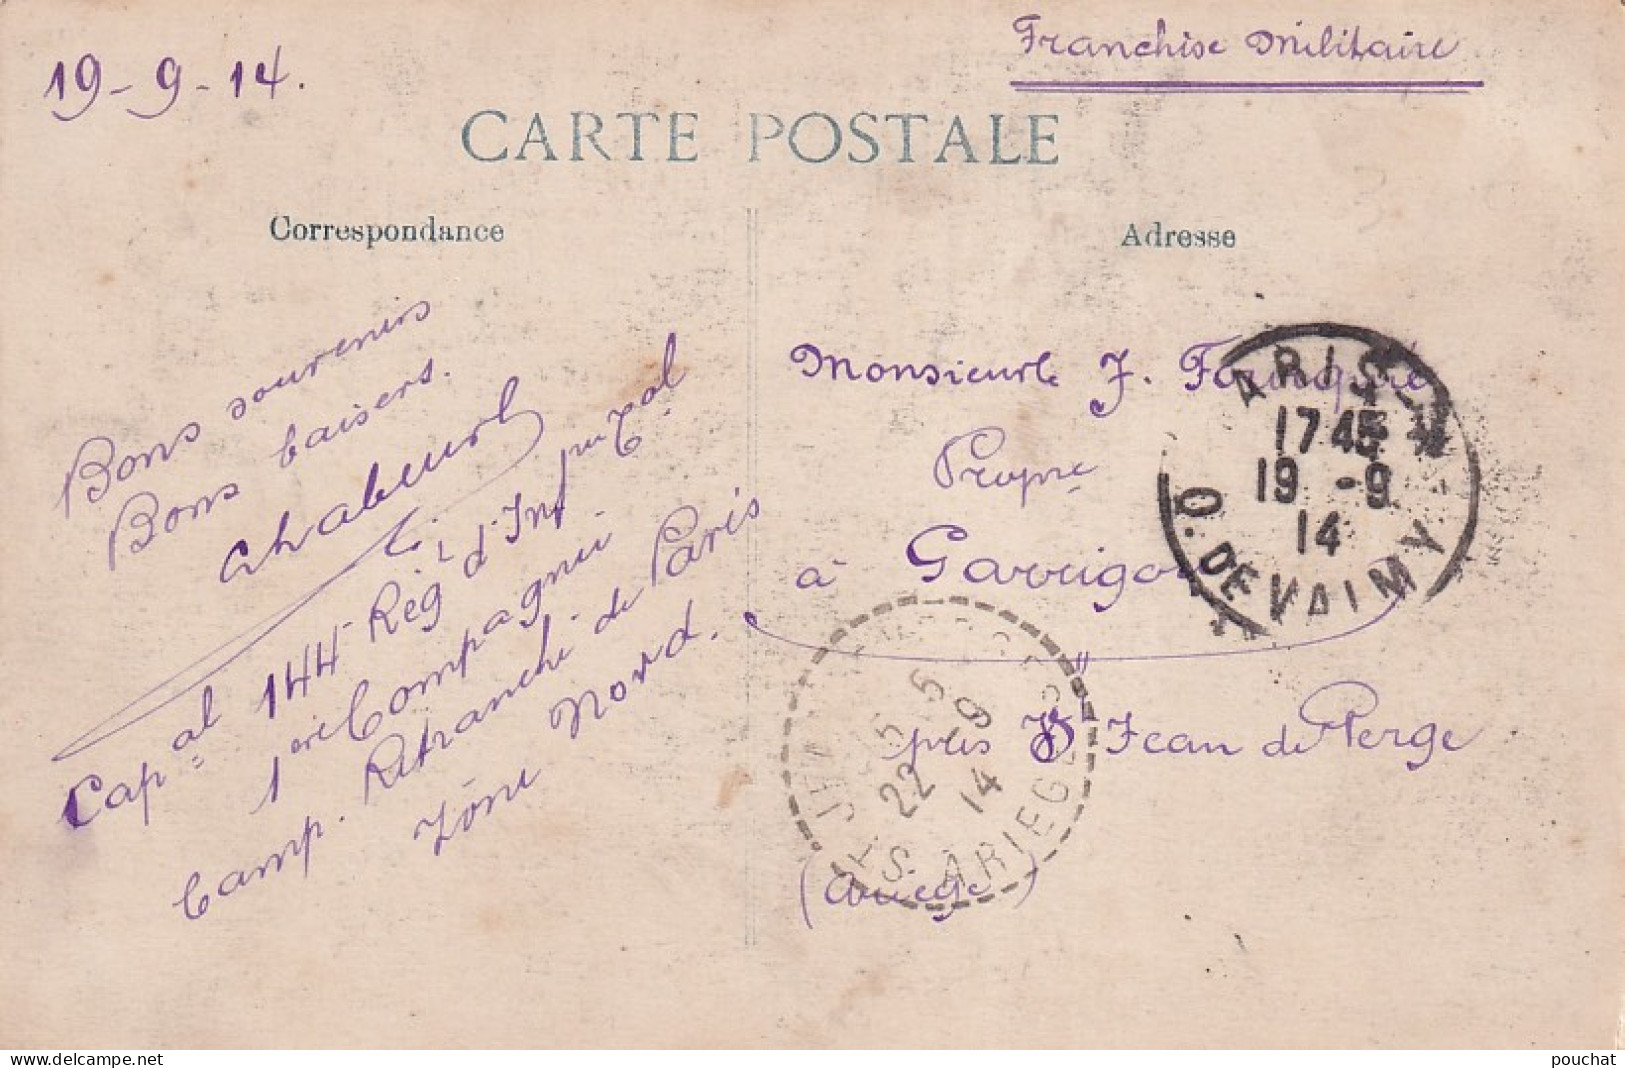 19-9-14.
Franchise Militaire
CARTE POSTALE
Correspondance
Adresse
Bons souvenirs
Bons baisers.
Chabeurt
Cap al 144 Rég d'Inf
1ere Compagnie
Camp. Retranché de Paris
Zône Nord.
Monsieur J.
Propre
à Garrigo
près St Jean de Verge
(Ariège)
ARIS
17 45
19 -9
14
Q. DE VALMY
5
22 -9
14
ARIEGE
pouchat